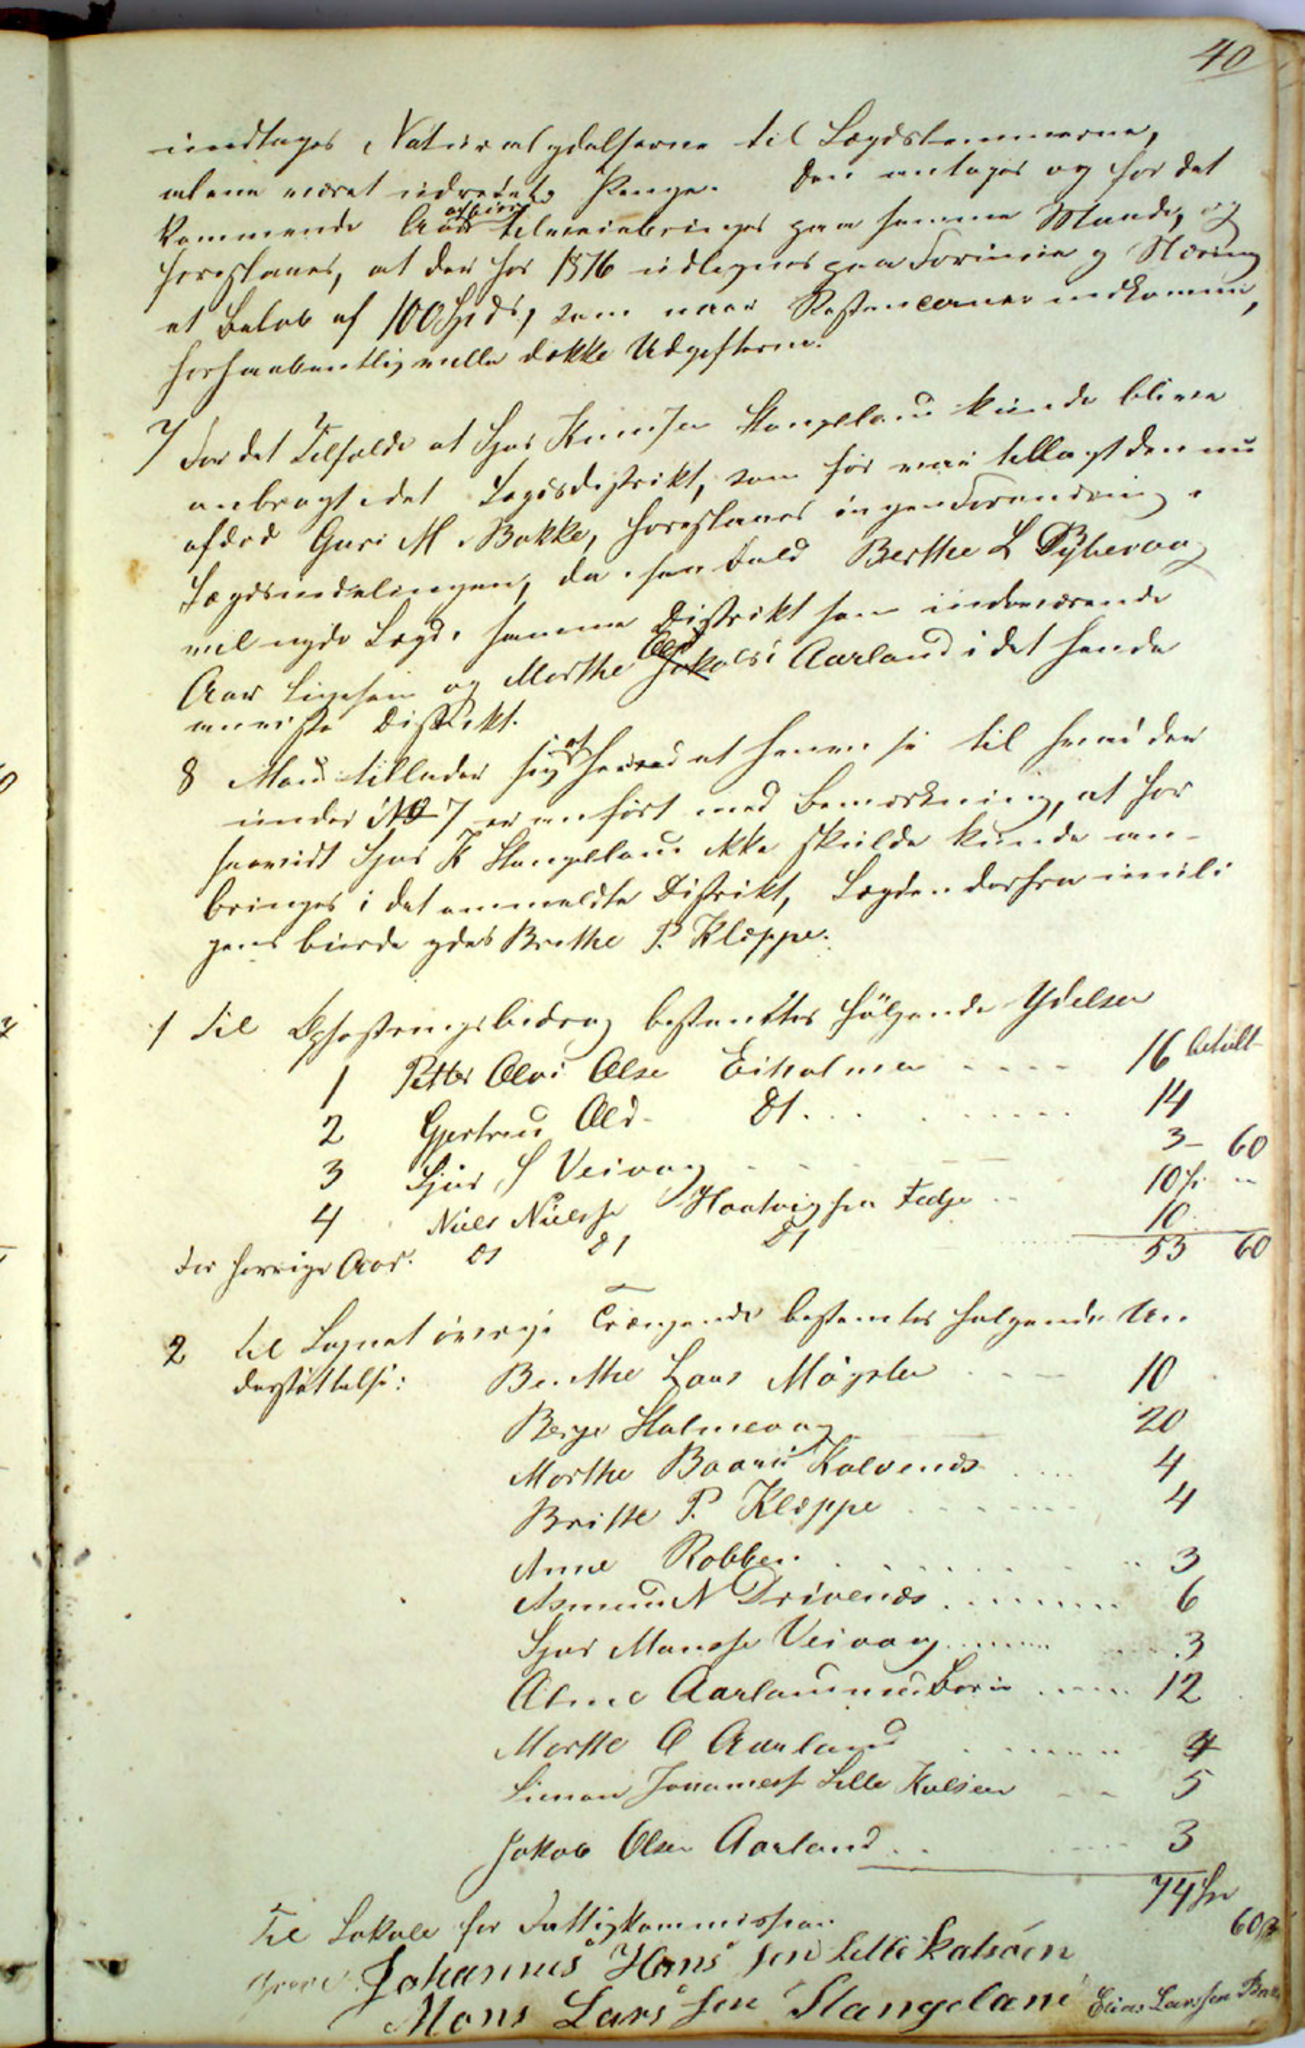 40
indtages Naturalydelserne til Lægdslemmerne,
alene været udredet Penge. Den antages og for det
kommende Aar tilveiebringes paa samme Maade, og
foreslaaes, at der for 1876 udlignes paa Formue og Næring
et Beløb af 100 Spds, som naar Restancerne indkomme,
forhaabentlig ville dække Udgifterne.
7 For det Tilfælde at Sjur Knutsen Stangeland kunde blive
anbragt i det Lægdsdistrikt, som før var tillagt den nu
afdød Guri M. Bakke, foreslaaes ingen Forandring i
Lægdsinddelingen, da i saa Fald Berthe L Pyttevaag
vil nyde Lægd i samme Distrikt som indeværende
Aar ligesom og Marthe Olsd Jakobs Aarland i det hende
anviste Distrikt.
8 Man tillader sig at hense til hvad der
under No 7 er anført med Bemærkning, at for
saavidt Sjur K Stangeland ikke skulde kunde an-
bringes i det anmeldte Distrikt, Lægden derfra
burde ydes Brithe P. Kleppe.
1 Til Opfostringsbidrag bestemtes følgende Ydelser
1 Petter Olai Olsen Eikalmen 16 betalt
2 Gjertrud Olsd. Dt. 14
3 Sjur S Veivaag 3 - 60
4 Niels Nielsen Hartvigsen Fedje 10 "
for forrige Aar. Dt Dt Dt 10
53 60
2 Til Sognets øvrige Trængende bestemtes følgende Un-
derstøttelse: Berthe Lars Møgster 10
Berge Stalmevaag 20
Marthe Baars Kalvenæs 4
Britte P. Kleppe 4
Anne Robben 3
Asmund N Drivenæs 6
Sjur Monsen Veivaag 3
Anne Aarland 12
Marthe O Aarland 4
Simon Johannesen Lille Kalsøen 5
Jakob Olsen Aarland 3
74
Til Lokale for Fattigkommissionen 60
Johannes Hans sen lille kalsøen
Mons Lars sen Stangeland Elias Larssen